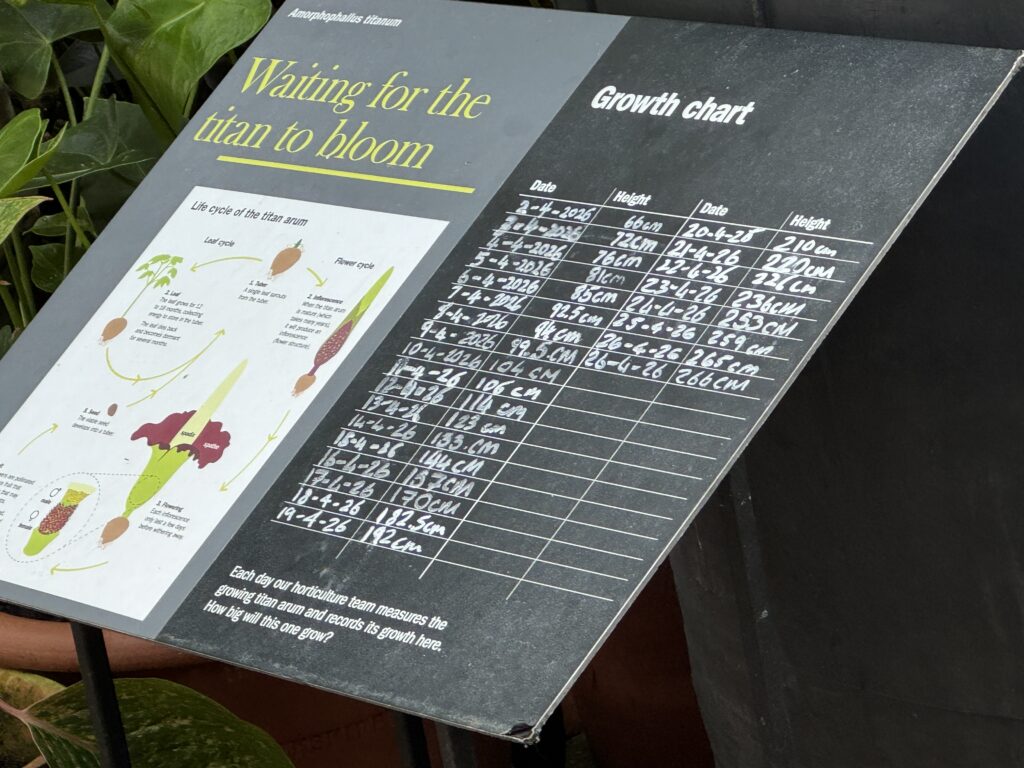 Amorphophallus titanum
Waiting for the
titan to bloom
Life cycle of the titan arum
Leaf cycle
Flower cycle
1. Tuber
A single leaf sprouts
from the tuber.
2. Leaf
The leaf grows for 12
to 18 months, collecting
energy to store in the tuber.
The leaf dies back
and becomes dormant
for several months.
2. Inflorescence
When the titan arum
is mature (which
takes many years),
it will produce an
inflorescence
(flower structure).
5. Seed
The viable seed
develops into a tuber.
spadix
spathe
male
female
3. Flowering
Each inflorescence
only last a few days
before withering away.
Growth chart
Date Height Date Height
2-4-2026 66cm 20-4-26 210cm
3-4-2026 72cm 21-4-26 220cm
4-4-2026 76cm 22-4-26 226cm
5-4-2026 81cm 23-4-26 236cm
6-4-2026 85cm 24-4-26 253cm
7-4-2026 92.5cm 25-4-26 259cm
8-4-2026 94cm 26-4-26 265cm
9-4-2026 99.5CM 26-4-26 266CM
10-4-2026 104 CM
11-4-26 106 cm
12-4-26 114 cm
13-4-26 123 cm
14-4-26 133.cm
15-4-26 144CM
16-4-26 157CM
17-4-26 170CM
18-4-26 182.5cm
19-4-26 192cm
Each day our horticulture team measures the
growing titan arum and records its growth here.
How big will this one grow?